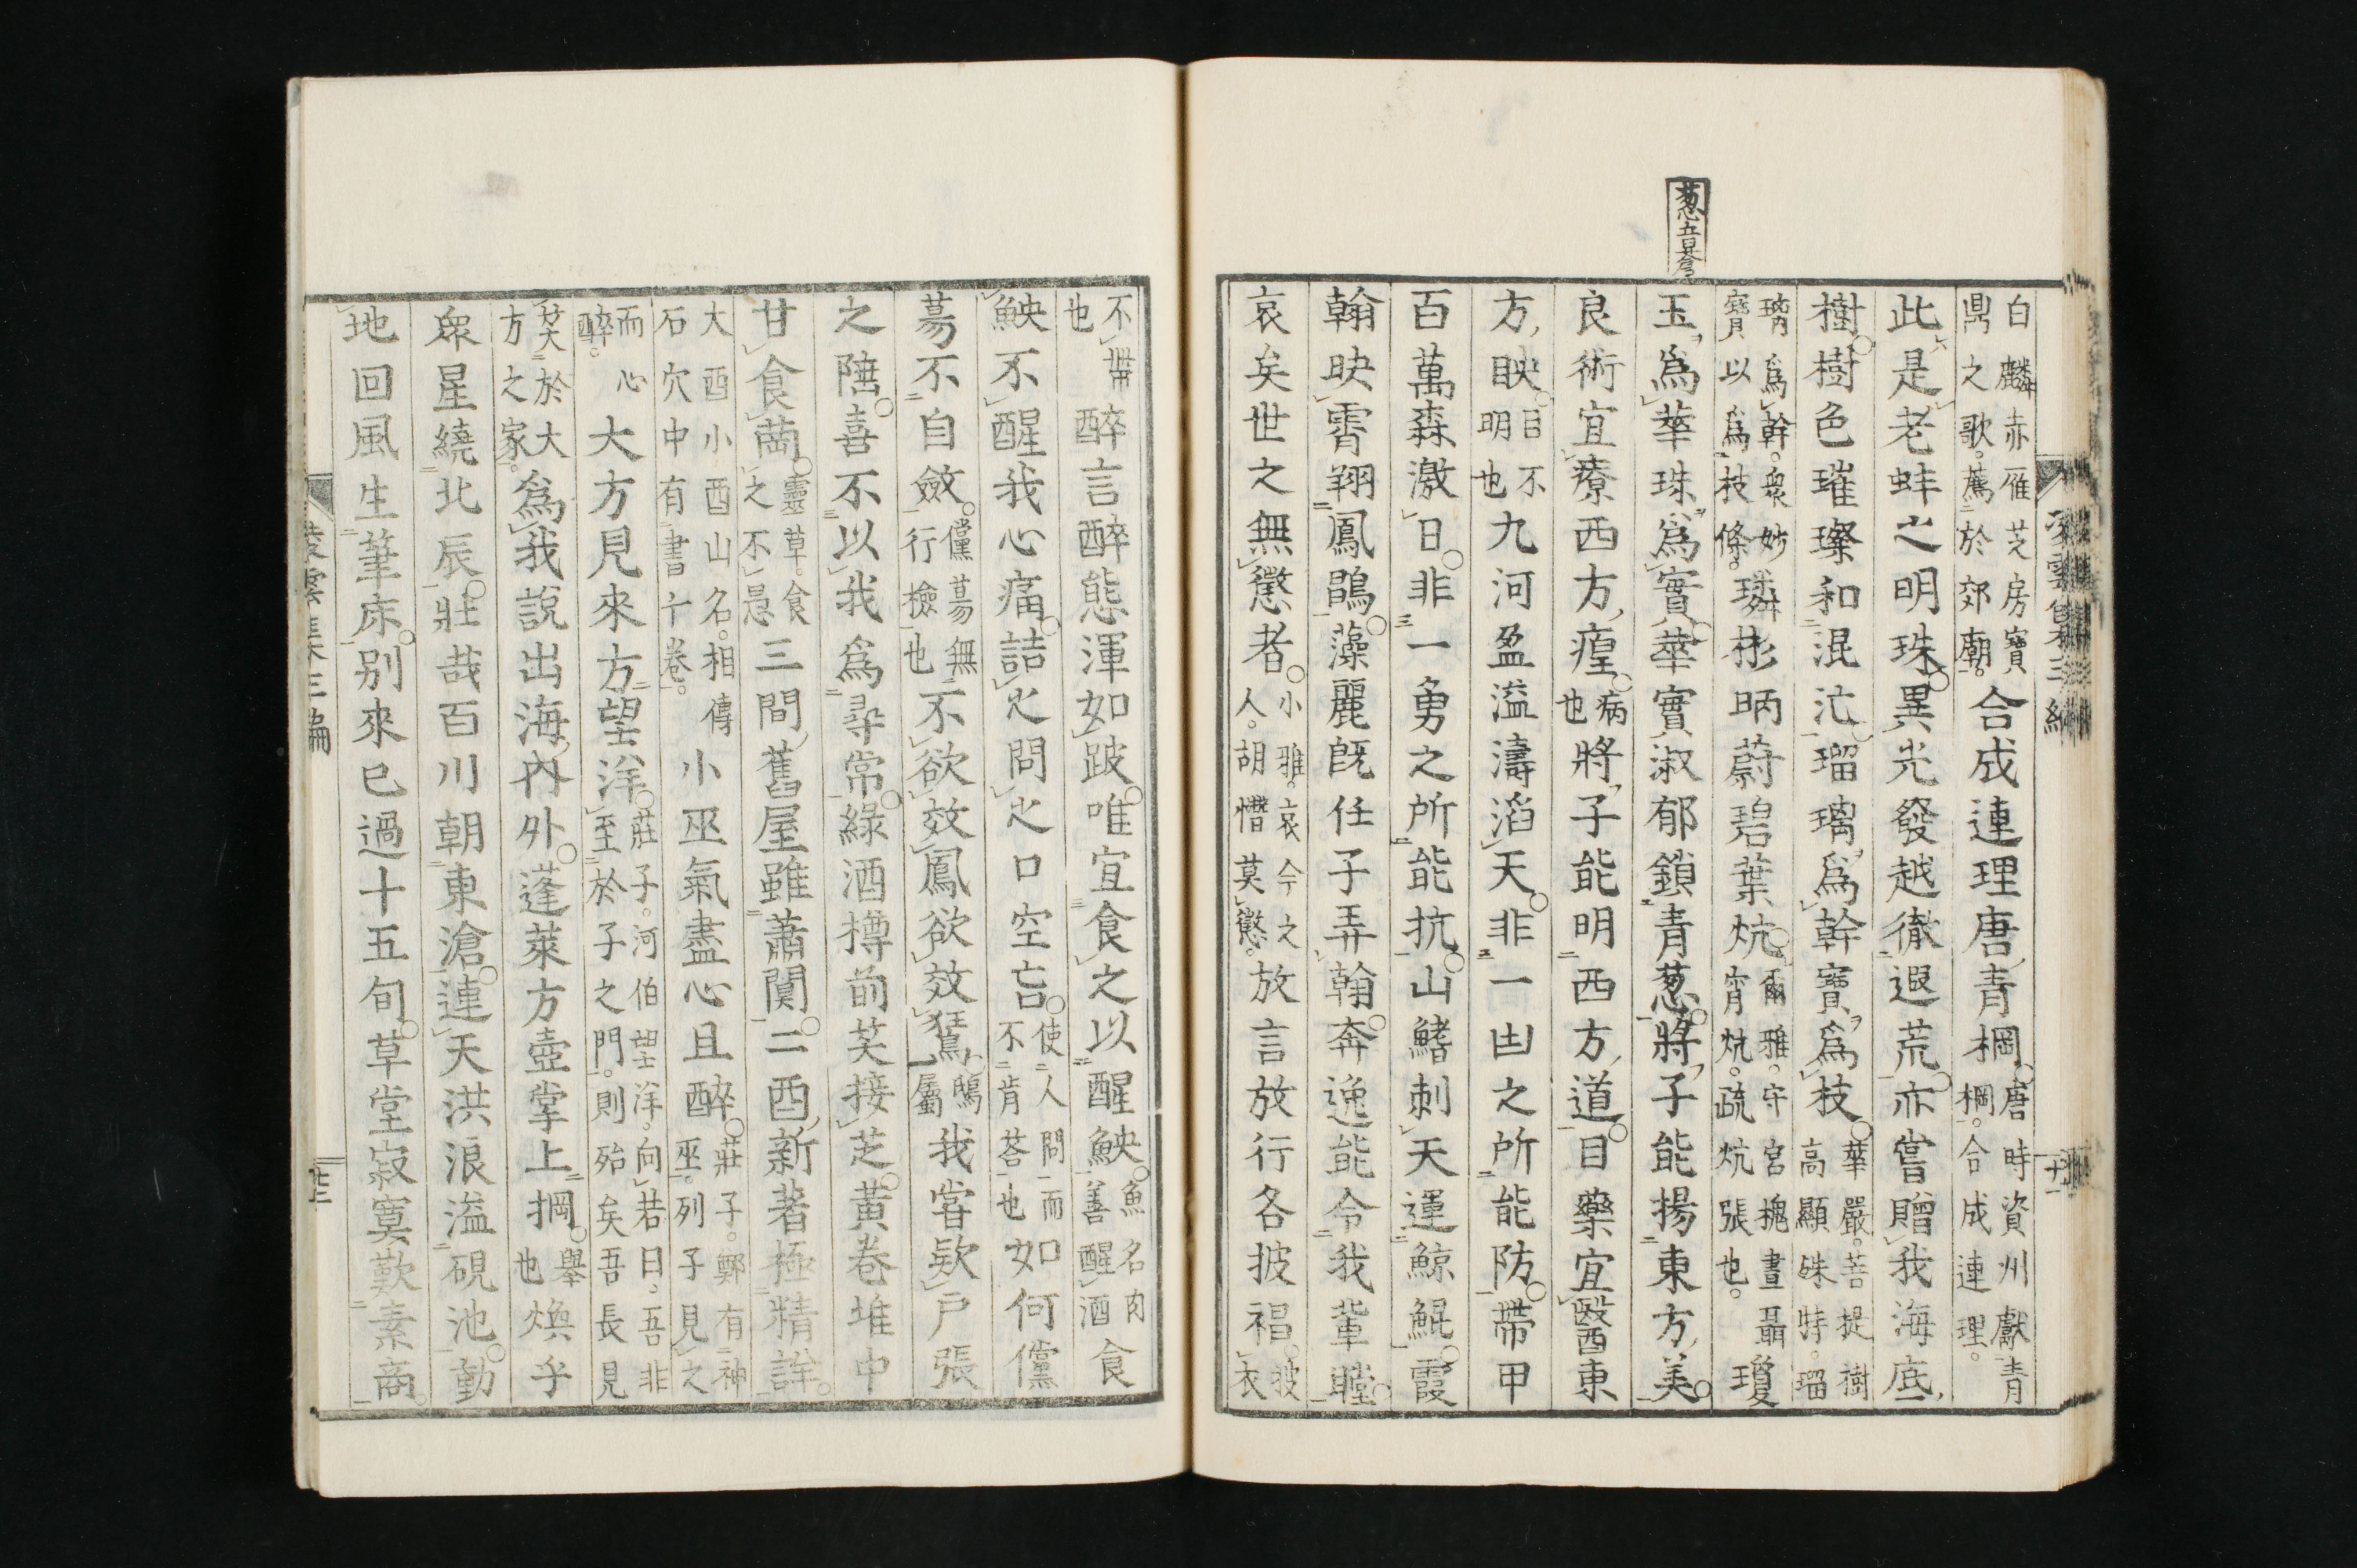 葱音叢
白麟赤雁芝房寶鼎之歌薦於郊廟合成連理唐青棡唐時資州獻青棡合成連理
此是老蚌之明珠異光發越徹遐荒亦嘗贈我海底
樹樹色璀璨和混沱瑠璃爲幹寶爲枝華嚴菩提樹高顯殊特瑠
璃爲幹衆妙寶以爲枝條璘彬昞蔚碧葉炕爾雅守宮槐晝聶宵炕疏炕張也瓊
玉爲華珠爲實華實淑郁鎖青葱將子能揚東方美
良術宜療西方瘇病也將子能明西方道目藥宜醫東
方眏目不明也九河盈溢濤滔天非一凷之所能防帶甲
百萬森激日非一勇之所能抗山鰭刺天運鯨鯤霞
翰映霄翔鳳鵾藻麗既任子弄翰奔逸能令我輩瞠
哀矣世之無懲者小雅哀今之人胡憯莫懲放言放行各披裮披衣
不帶也醉言醉態渾如跛唯宜食之以醒䱀魚名肉善醒酒食
䱀不醒我心痛詰之問之口空吂使人問而不肯荅也如何儻
蕩不自斂儻蕩無行檢也不欲效鳳欲效鵟鴟屬我嘗欵戶張
之陲喜不以我爲尋常綠酒樽前笑接芝黃卷堆中
甘食䓘靈草食之不愚三間舊屋雖蕭闃二酉新著極精詳
大酉小酉山名相傳石穴中有書千卷小巫氣盡心且醉莊子鄭有神巫列子見之
而心醉大方見來方望洋莊子河伯望洋向若曰吾非至於子之門則殆矣吾長見
笑於大方之家爲我說出海內外蓬萊方壺掌上掆擧也煥乎
衆星繞北辰壯哉百川朝東滄連天洪浪溢硯池動
地回風生筆床別來已過十五旬草堂寂寞歎素商